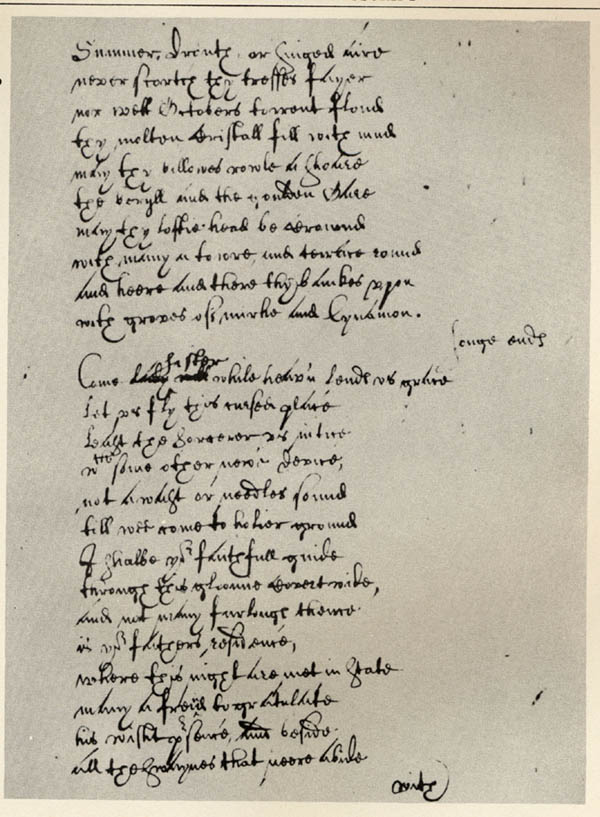 Summer, drouth, or singed aire
never scortch thy tresses fayer
nor wett Octobers torrent floud
thy molten cristall fill with mud
may thy billowes rowle a shoare
the beryll and the goulden Oare
may thy loftie head be crownd
with many a towre, and terrace round
and heere and there thy bankes vpon
with groves of mirhe and Cynamon.
songe ends
sister
Come while heav'n lends vs grace
let vs fly this cursed place
least the Sorcerer vs intice
wth some other newe device,
not a wast or needles sound
till wee come to holier ground
I shalbe yor faithfull guide
through this gloomie covert wide,
and not many furlongs thence
is yor fathers residence,
where this night are met in State
many a freind to gratulate
his wisht psence, and beside
all the Swaynes that neere abide
with